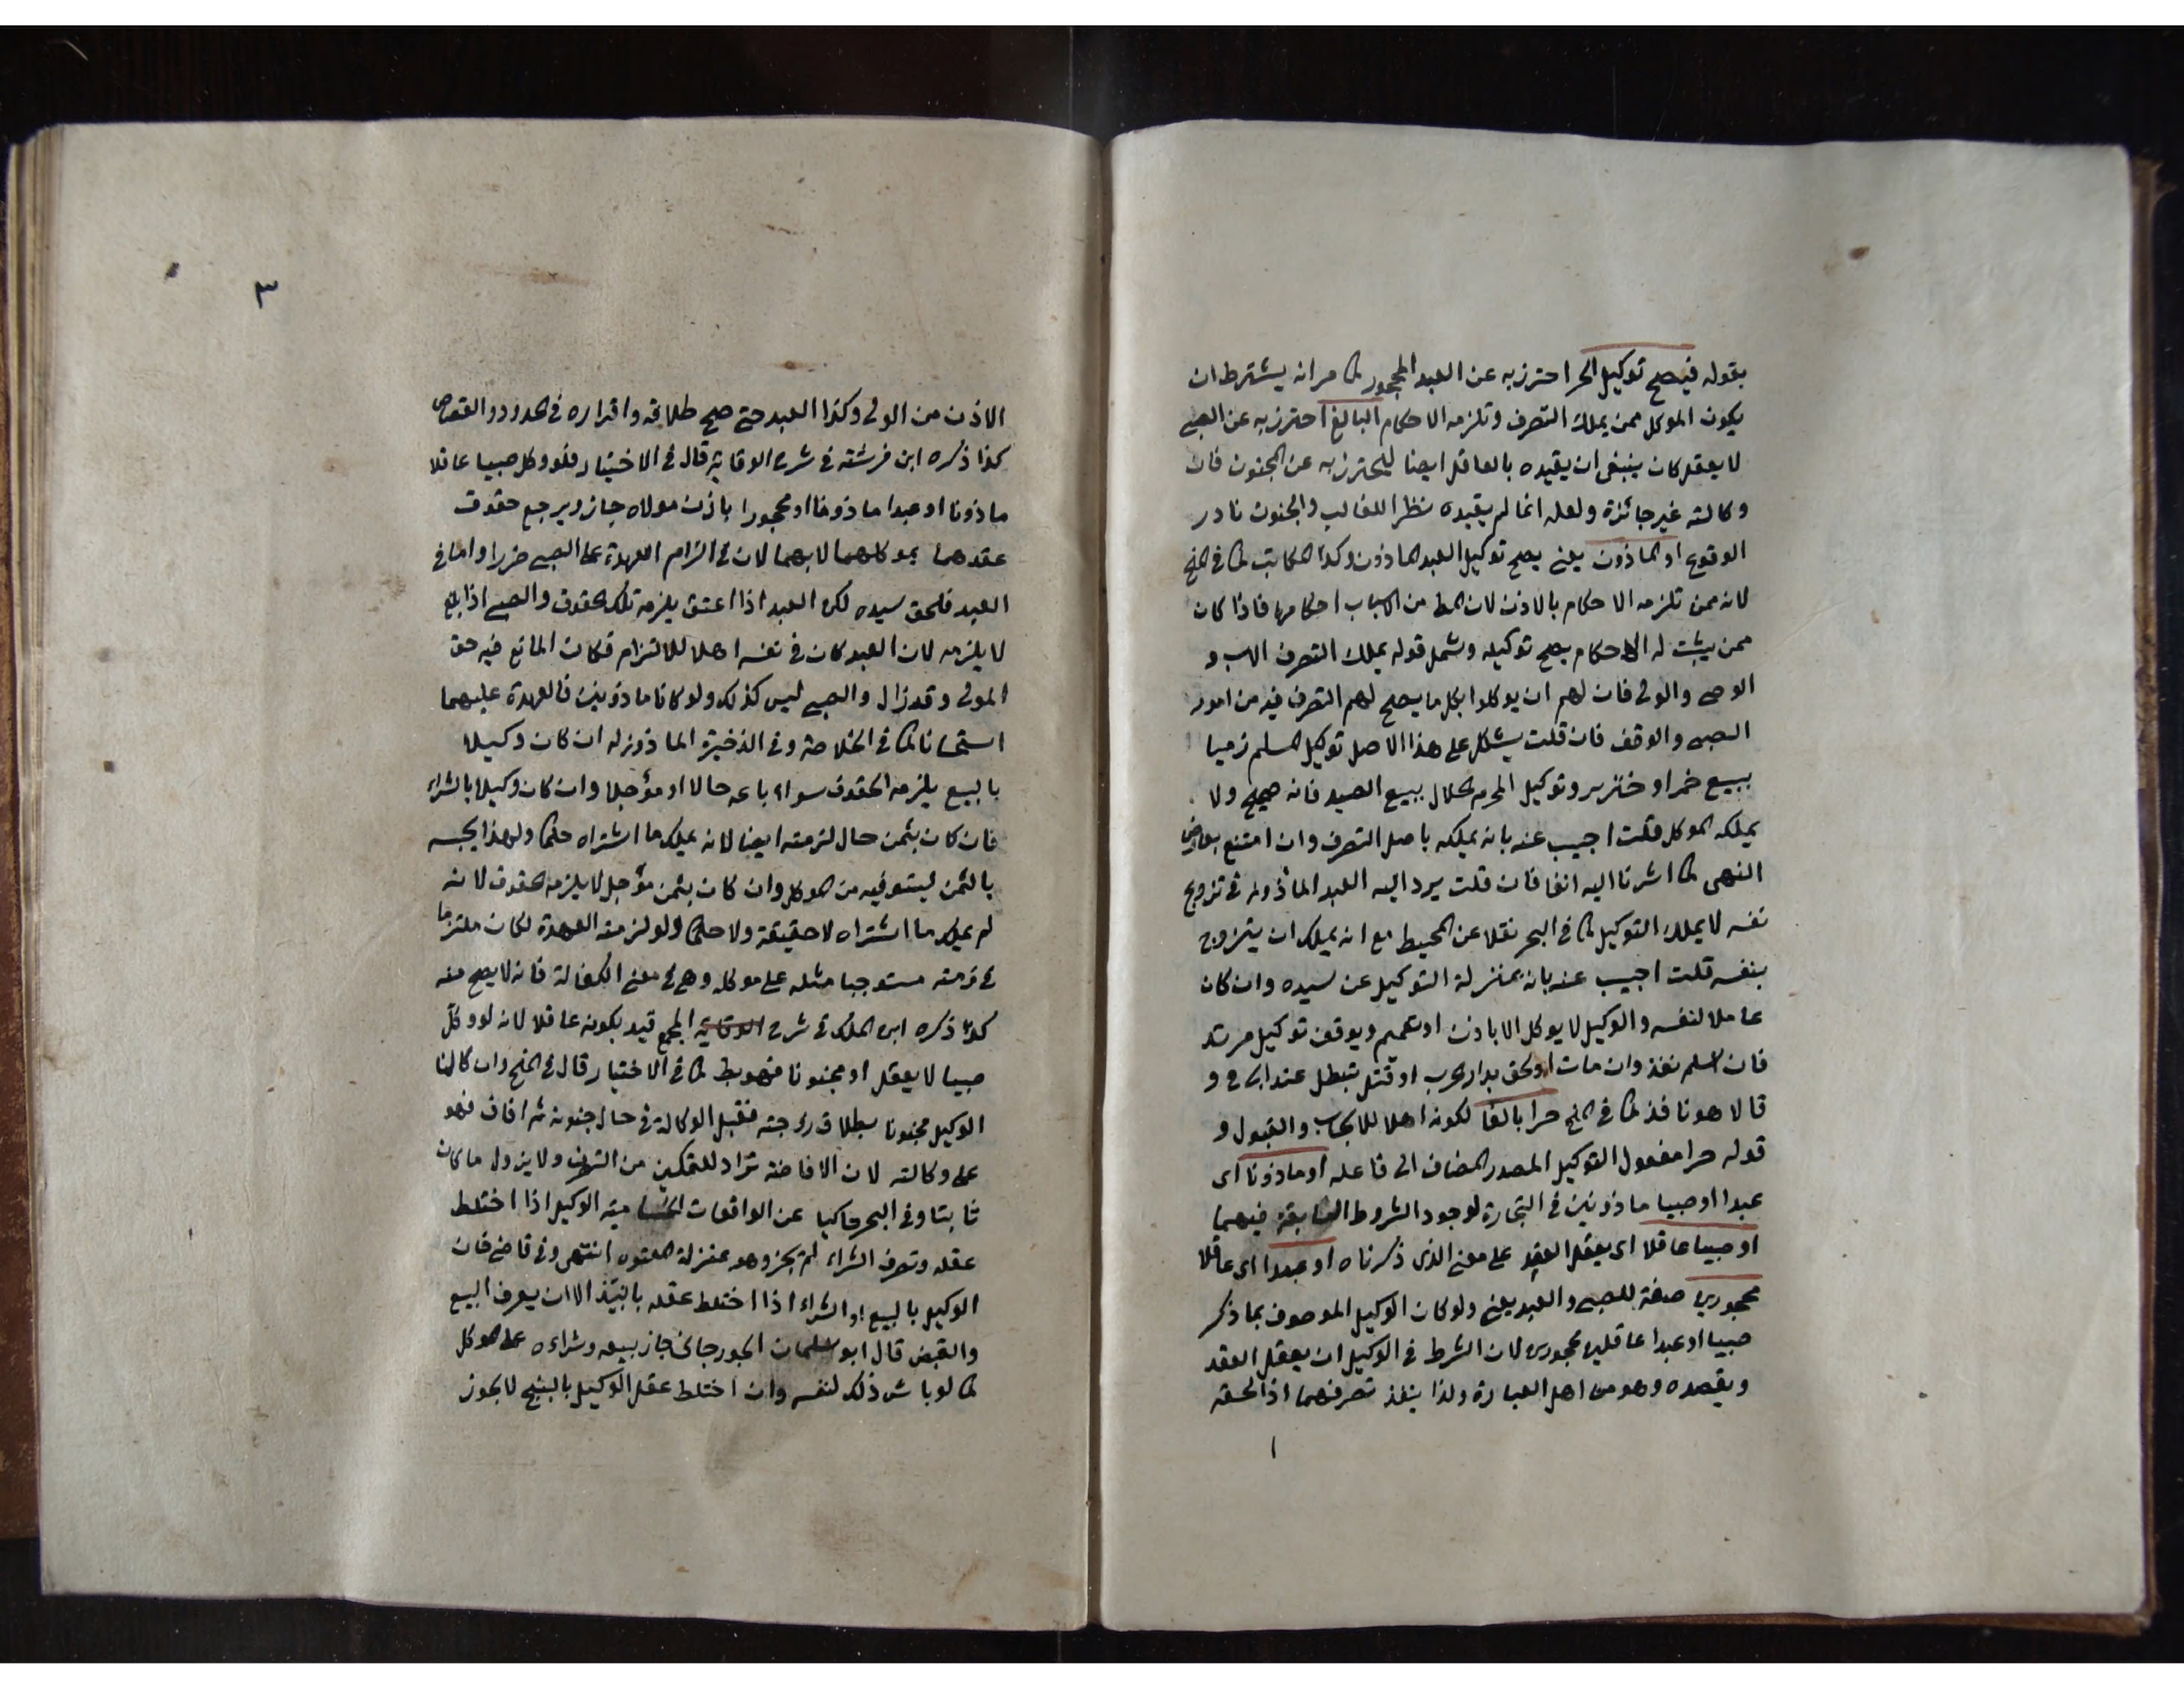 بقوله فيصح توكيل الحر احترز به عن العبد المحجور كما مر انه يشترط ان
يكون الموكل ممن يملك التصرف وتلزمه الاحكام البالغ احترز به عن الصبي
لا يعقل كان ينبغي ان يقيده بالعاقل ايضا ليحترز به عن المجنون فان
وكالته غير جائزة ولعله انما لم يقيده نظرا للغالب والجنون نادر
الوقوع او الماذون يعني يصح توكيل العبد الماذون وكذا المكاتب كما في المنح
لانه ممن تلزمه الاحكام بالاذن لان المط من الاسباب احكامها فاذا كان
ممن يثبت له الاحكام يصح توكيله وشمل قوله يملك التصرف الاب و
الوصي والولي فان لهم ان يوكلوا بكل ما يصح لهم التصرف فيه من امور
الصبي والوقف فان قلت يشكل على هذا الاصل توكيل المسلم ذميا
ببيع خمر او خنزير وتوكيل المحرم الحلال ببيع الصيد فانه صحيح ولا
يملكه الموكل قلت اجيب عنه بانه يملكه باصل التصرف وان امتنع بعارض
النهي كما اشرنا اليه انفا فان قلت يرد اليه العبد الماذون في تزويج
نفسه لا يملك التوكيل كما في البحر نقلا عن المحيط مع انه يملك ان يتزوج
بنفسه قلت اجيب عنه بانه بمنزلة التوكيل عن سيده وان كان
عاملا لنفسه والوكيل لا يوكل الا باذن او تعميم ويوقف توكيل مرتد
فان اسلم نفذ وان مات او لحق بدار الحرب او قتل تبطل عند ابي ح و
قالا هو نافذ كما في المنح حرا بالغا لكونه اهلا للايجاب والقبول و
قوله حرا مفعول التوكيل المصدر المضاف الى فاعله او ماذونا اى
عبدا او صبيا ماذونين في التجارة لوجود الشروط السابقة فيهما
او صبيا عاقلا اى يعقل العقد على معنى الذى ذكرناه او عبدا اى عاقلا
محجورين صفة للصبي والعبد يعني ولو كان الوكيل الموصوف بما ذكر
صبيا او عبدا عاقلين محجورين لان الشرط في الوكيل ان يعقل العقد
ويقصده وهو من اهل العبارة ولذا ينفذ تصرفهما اذا لحقه
١
٣
الاذن من الولي وكذا العبد حتى صح طلاقه واقراره في الحدود والقصاص
كذا ذكره ابن فرشته في شرح الوقاية قال في الاختيار فلو وكل صبيا عاقلا
ماذونا او عبدا ماذونا او محجورا باذن مولاه جاز ويرجع حقوق
عقدهما بموكلهما لا بهما لان في الزام العهدة على الصبي ضررا واما في
العبد فلحق سيده لكن العبد اذا اعتق يلزمه تلك الحقوق والصبي اذا بلغ
لا يلزمه لان العبد كان في نفسه اهلا للالتزام فكان المانع فيه حق
المولى وقد زال والصبي ليس كذلك ولو كانا ماذونين فالعهدة عليهما
استحسانا كما في الخلاصة وفي الذخيرة الماذون له ان كان وكيلا
بالبيع يلزمه الحقوق سواء باعه حالا او مؤجلا وان كان وكيلا بالشراء
فان كان بثمن حال لزمته ايضا لانه يملك ما اشتراه حكما ولهذا يحبسه
بالثمن ليستوفيه من الموكل وان كان بثمن مؤجل لا يلزمه الحقوق لانه
لم يملك ما اشتراه لا حقيقة ولا حكما ولو لزمته العهدة لكان ملتزما
في ذمته مستوجبا مثله على موكله وهي في معنى الكفالة فانه لا يصح منه
كذا ذكره ابن الملك في شرح الوقاية المجمع قيد بكونه عاقلا لانه لو وكل
صبيا لا يعقل او مجنونا فهو بط كما في الاختيار قال في المنح وان كان
الوكيل مجنونا بطلاق زوجته فقبل الوكالة في حال جنونه ثم افاق فهو
على وكالته لان الافاضة تزاد للتمكين من التصرف ولا يزول ما كان
ثابتا وفي البحر حاكيا عن الواقعات الحسامية الوكيل اذا اختلط
عقله وتصرف الشراء لم يجز وهو بمنزلة المعتوه انتهى وفي قاضي خان
الوكيل بالبيع او الشراء اذا اختلط عقله بالنبيذ الا ان يعرف البيع
والقبض قال ابو سليمان الجورجاني جاز بيعه وشراءه على الموكل
كما لو باشر ذلك لنفسه وان اختلط عقل الوكيل بالبنج لا يجوز